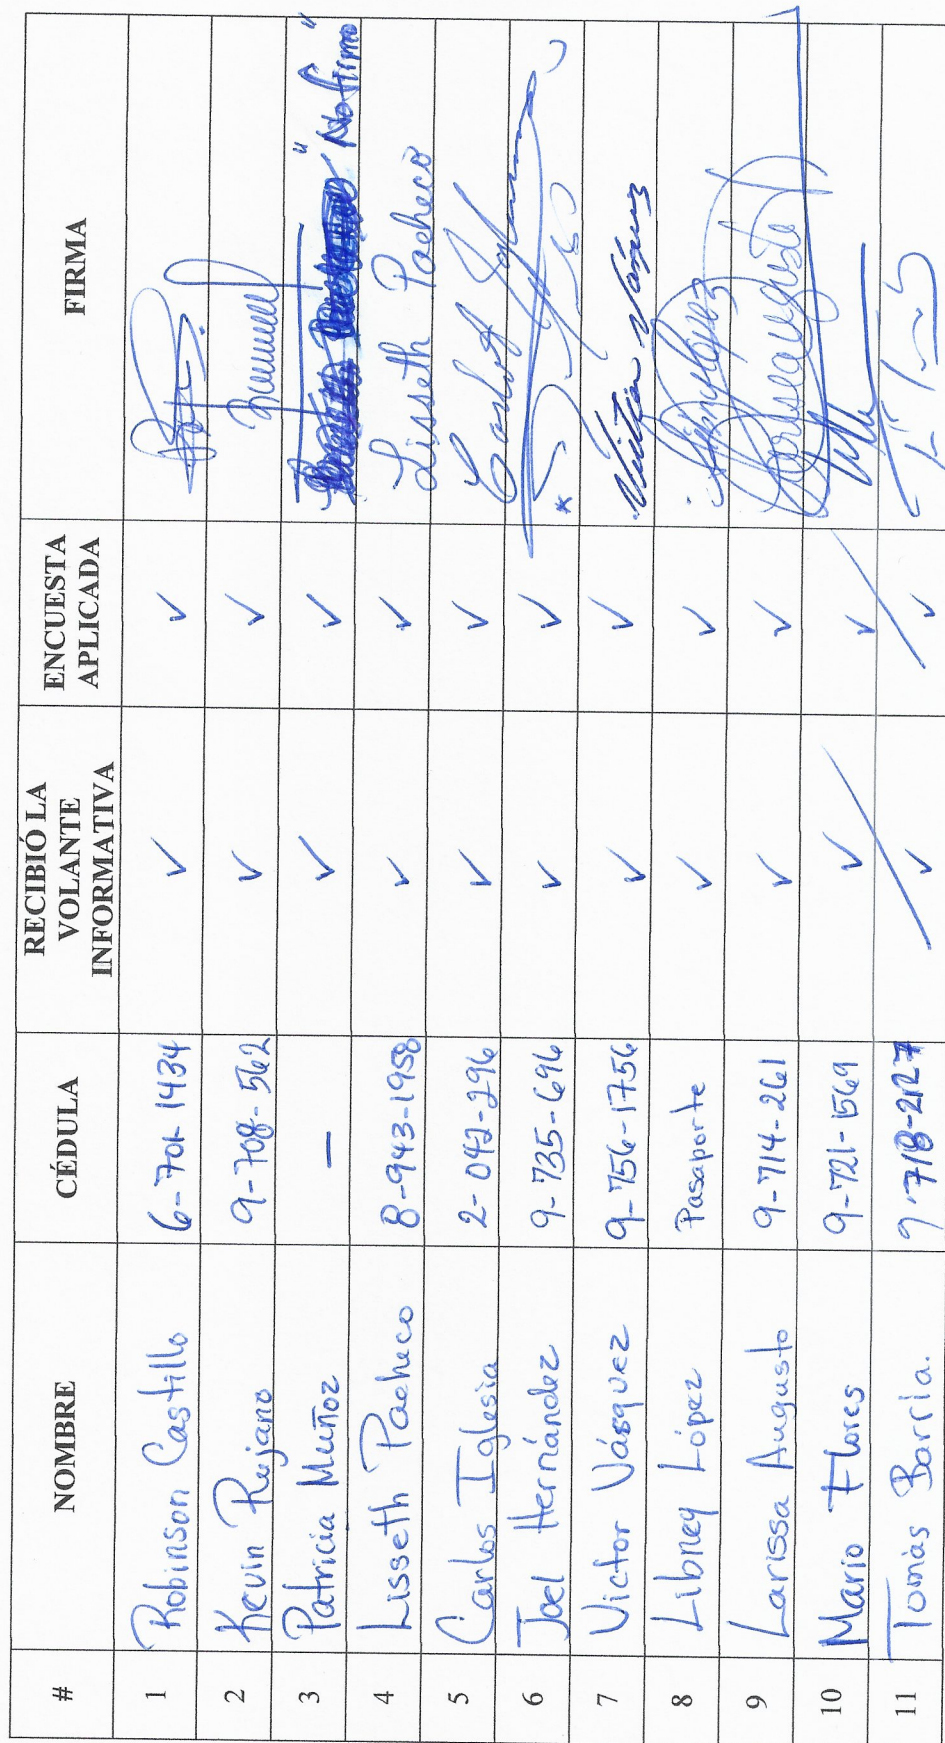 # NOMBRE CÉDULA RECIBIÓ LA VOLANTE INFORMATIVA ENCUESTA APLICADA FIRMA
1 Robinson Castillo 6-701-1434 ✓ ✓
2 Kevin Rujano 9-708-562 ✓ ✓
3 Patricia Muñoz — ✓ ✓ "No firmo"
4 Lisseth Pacheco 8-943-1958 ✓ ✓ Lisseth Pacheco
5 Carlos Iglesia 2-042-296 ✓ ✓
6 Joel Hernández 9-735-696 ✓ ✓
7 Victor Vásquez 9-756-1756 ✓ ✓
8 Libney López Pasaporte ✓ ✓
9 Larissa Augusto 9-714-261 ✓ ✓
10 Mario Flores 9-721-1569 ✓ ✓
11 Tomás Barría. 9-718-2127 ✓ ✓